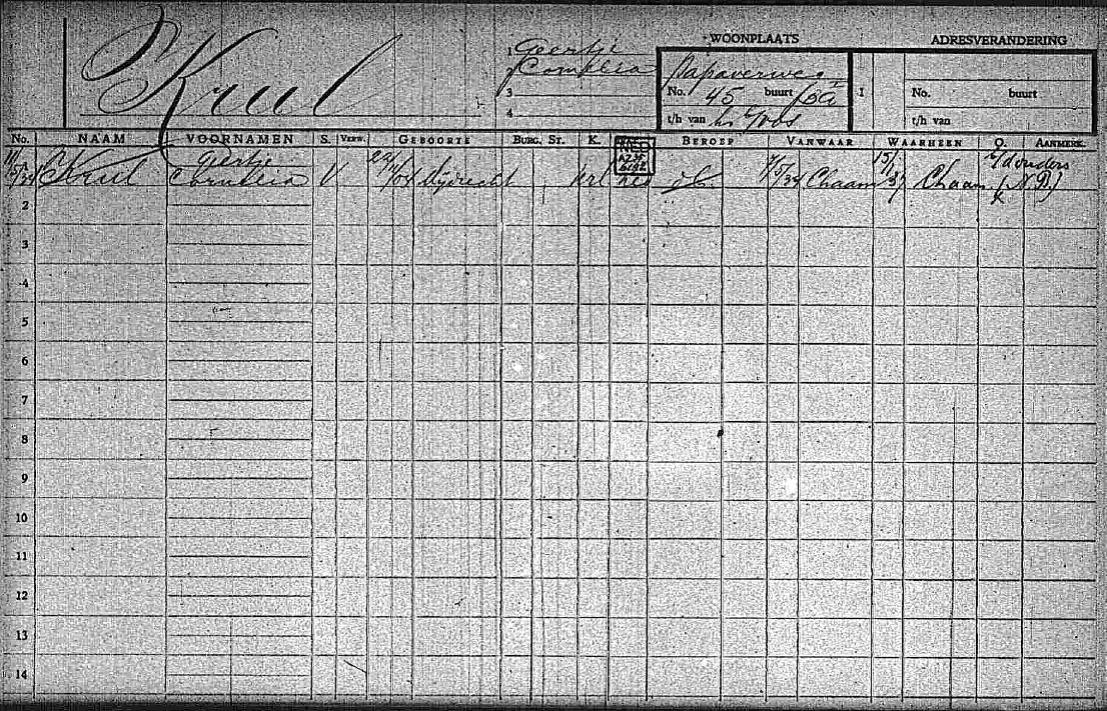 Krul
1 Geertje
Cornelia
3
4
WOONPLAATS
Papaverweg
No. 45 buurt
t/h van Vos
ADRESVERANDERING
1
No. buurt
t/h van
No. NAAM VOORNAMEN S. Verw. GEBOORTE BURG. ST. K. BEROEP VANWAAR WAARHEEN O. AANMERK.
Krul Geertje Cornelia V Mijdrecht Ned Chaam 15/ 37 Chaam (N.B.)
2
3
4
5
6
7
8
9
10
11
12
13
14